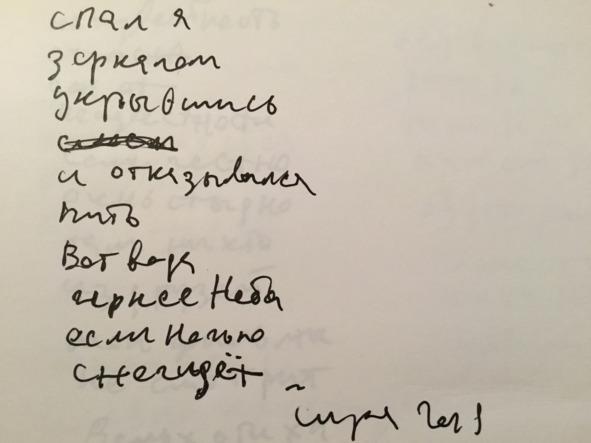 спал я
зеркалом
укрывшись
и отказывался
пить
Вот
чернее Неба
если Ночью
снег идёт